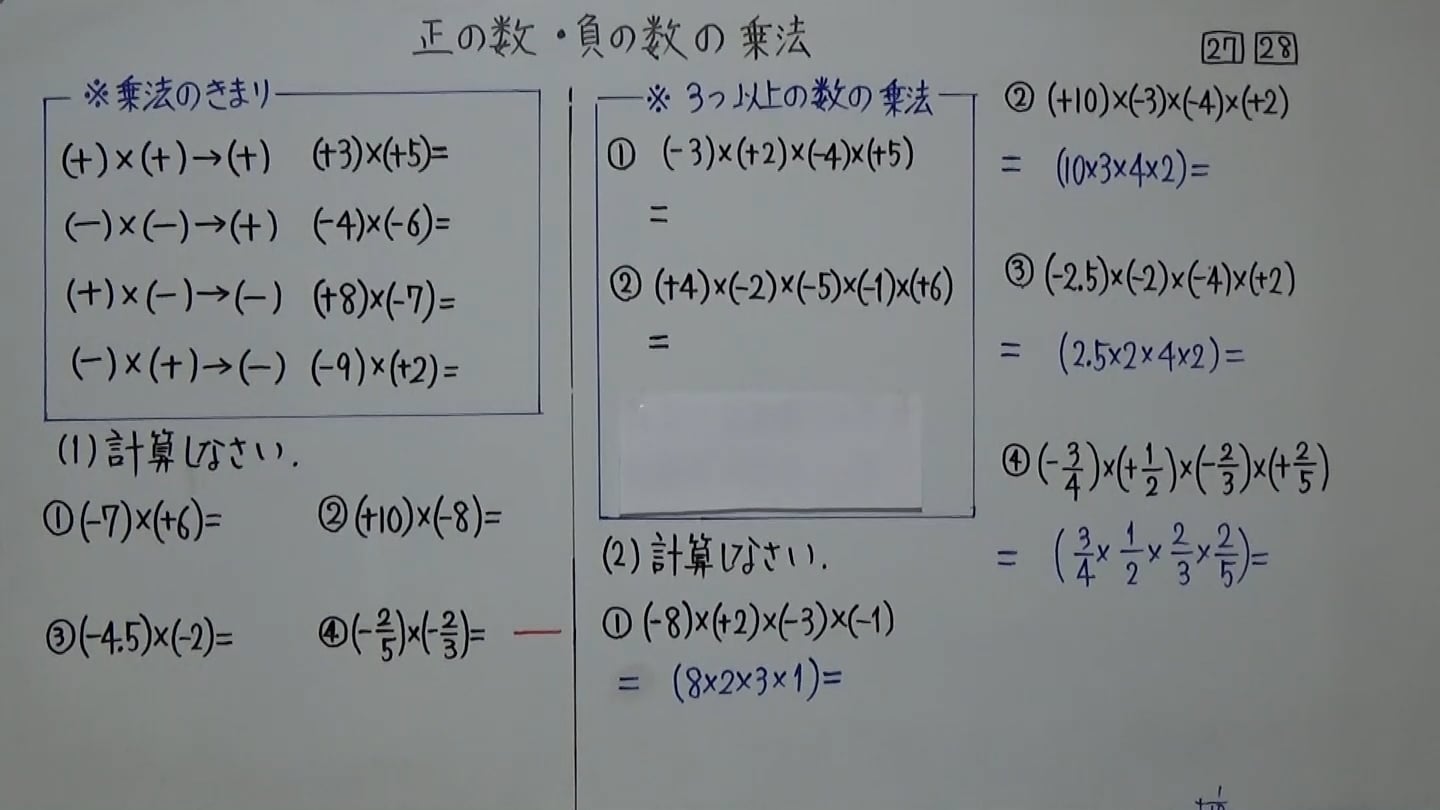 正の数・負の数の乗法
27 28
※乗法のきまり
(+)×(+)→(+) (+3)×(+5)=
(−)×(−)→(+) (-4)×(-6)=
(+)×(−)→(−) (+8)×(-7)=
(−)×(+)→(−) (-9)×(+2)=
(1)計算しなさい.
①(-7)×(+6)= ②(+10)×(-8)=
③(-4.5)×(-2)= ④(-2/5)×(-2/3)=
※ 3つ以上の数の乗法
① (-3)×(+2)×(-4)×(+5)
=
② (+4)×(-2)×(-5)×(-1)×(+6)
=
(2)計算しなさい.
① (-8)×(+2)×(-3)×(-1)
= (8×2×3×1)=
② (+10)×(-3)×(-4)×(+2)
= (10×3×4×2)=
③ (-2.5)×(-2)×(-4)×(+2)
= (2.5×2×4×2)=
④ (-3/4)×(+1/2)×(-2/3)×(+2/5)
= (3/4×1/2×2/3×2/5)=